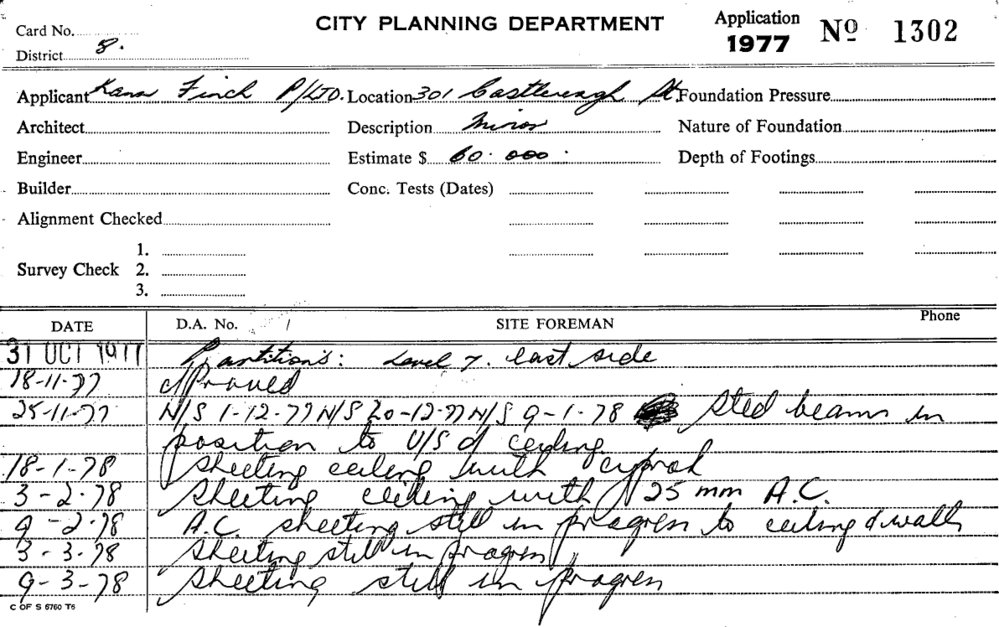 CITY PLANNING DEPARTMENT
Card No.
District 8.
Application
1977
Nº 1302
Applicant Kann Finch P/LTD. Location 301 Castlereagh St. Foundation Pressure
Architect Description Minor Nature of Foundation
Engineer Estimate $ 60.000. Depth of Footings
Builder Conc. Tests (Dates)
Alignment Checked
1.
Survey Check 2.
3.
DATE D.A. No. SITE FOREMAN Phone
31 OCT 1977 Partitions: Level 7. East side
18-11-77 Approved
25-11-77 N/S 1-12-77 N/S 20-12-77 N/S 9-1-78 Steel beams in
position to U/S of ceiling
18-1-78 Sheeting ceiling with gyprok
3-2-78 Sheeting ceiling with 25 mm A.C.
9-2-78 A.C. sheeting still in progress to ceiling & walls
3-3-78 Sheeting still in progress
9-3-78 Sheeting still in progress
C OF S 6760 T6